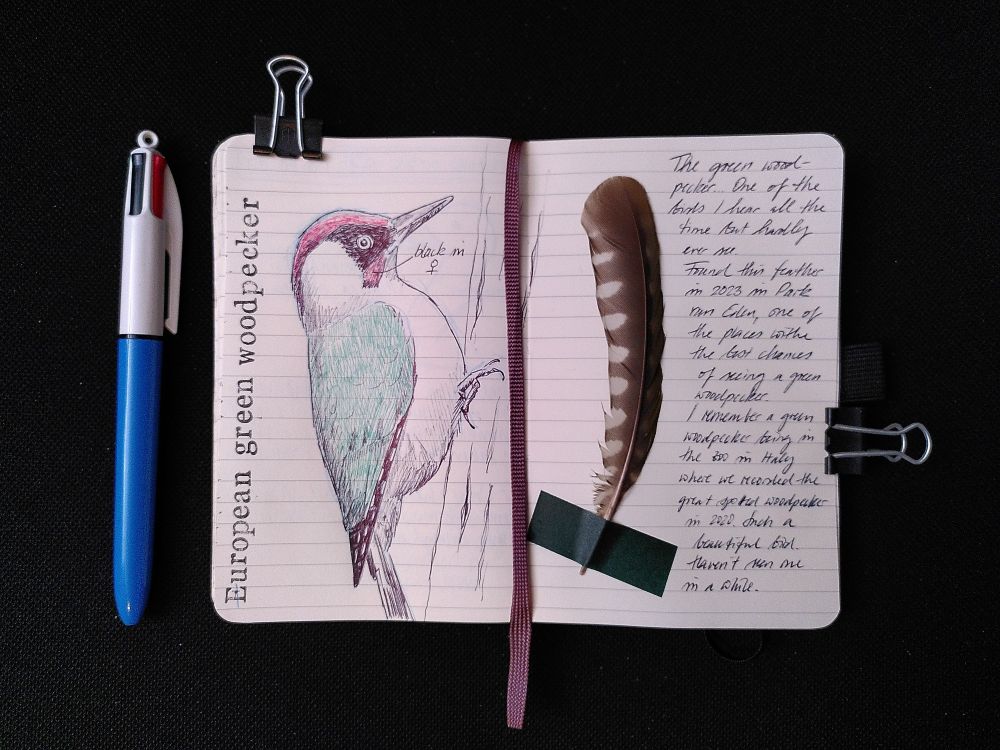 European green woodpecker
black in
♀
The green wood-
pecker. One of the
birds I hear all the
time but hardly
ever see.
Found this feather
in 2023 in Park
van Eden, one of
the places withe
the best chances
of seeing a green
woodpecker.
I remember a green
woodpecker being in
the zoo in Italy
where we recorded the
great spotted woodpecker
in 2020. Such a
beautiful bird.
Haven't seen one
in a while.